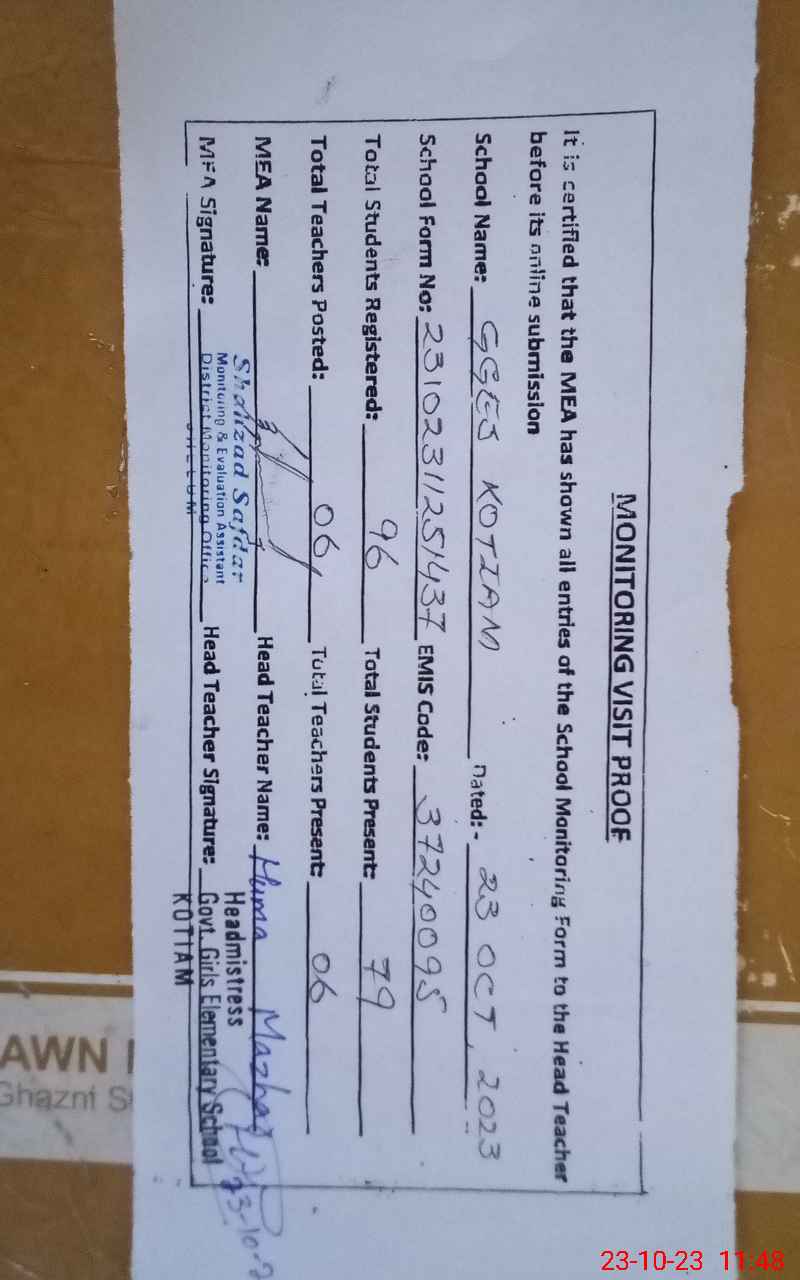 MONITORING VISIT PROOF
It is certified that the MEA has shown all entries of the School Monitoring Form to the Head Teacher
before its online submission
School Name: GGES KOTIAM Dated:- 23 OCT, 2023
School Form No: 23102311251437 EMIS Code: 37240095
Total Students Registered: 96 Total Students Present: 79
Total Teachers Posted: 06 Total Teachers Present: 06
MEA Name: Head Teacher Name: Huma Mazhar
Shahzad Safdar
Monitoring & Evaluation Assistant
District Monitoring Office
JHELUM
MEA Signature: Head Teacher Signature:
Headmistress
Govt. Girls Elementary School
KOTIAM
23-10-2
AWN
Ghazni S
23-10-23 11:48